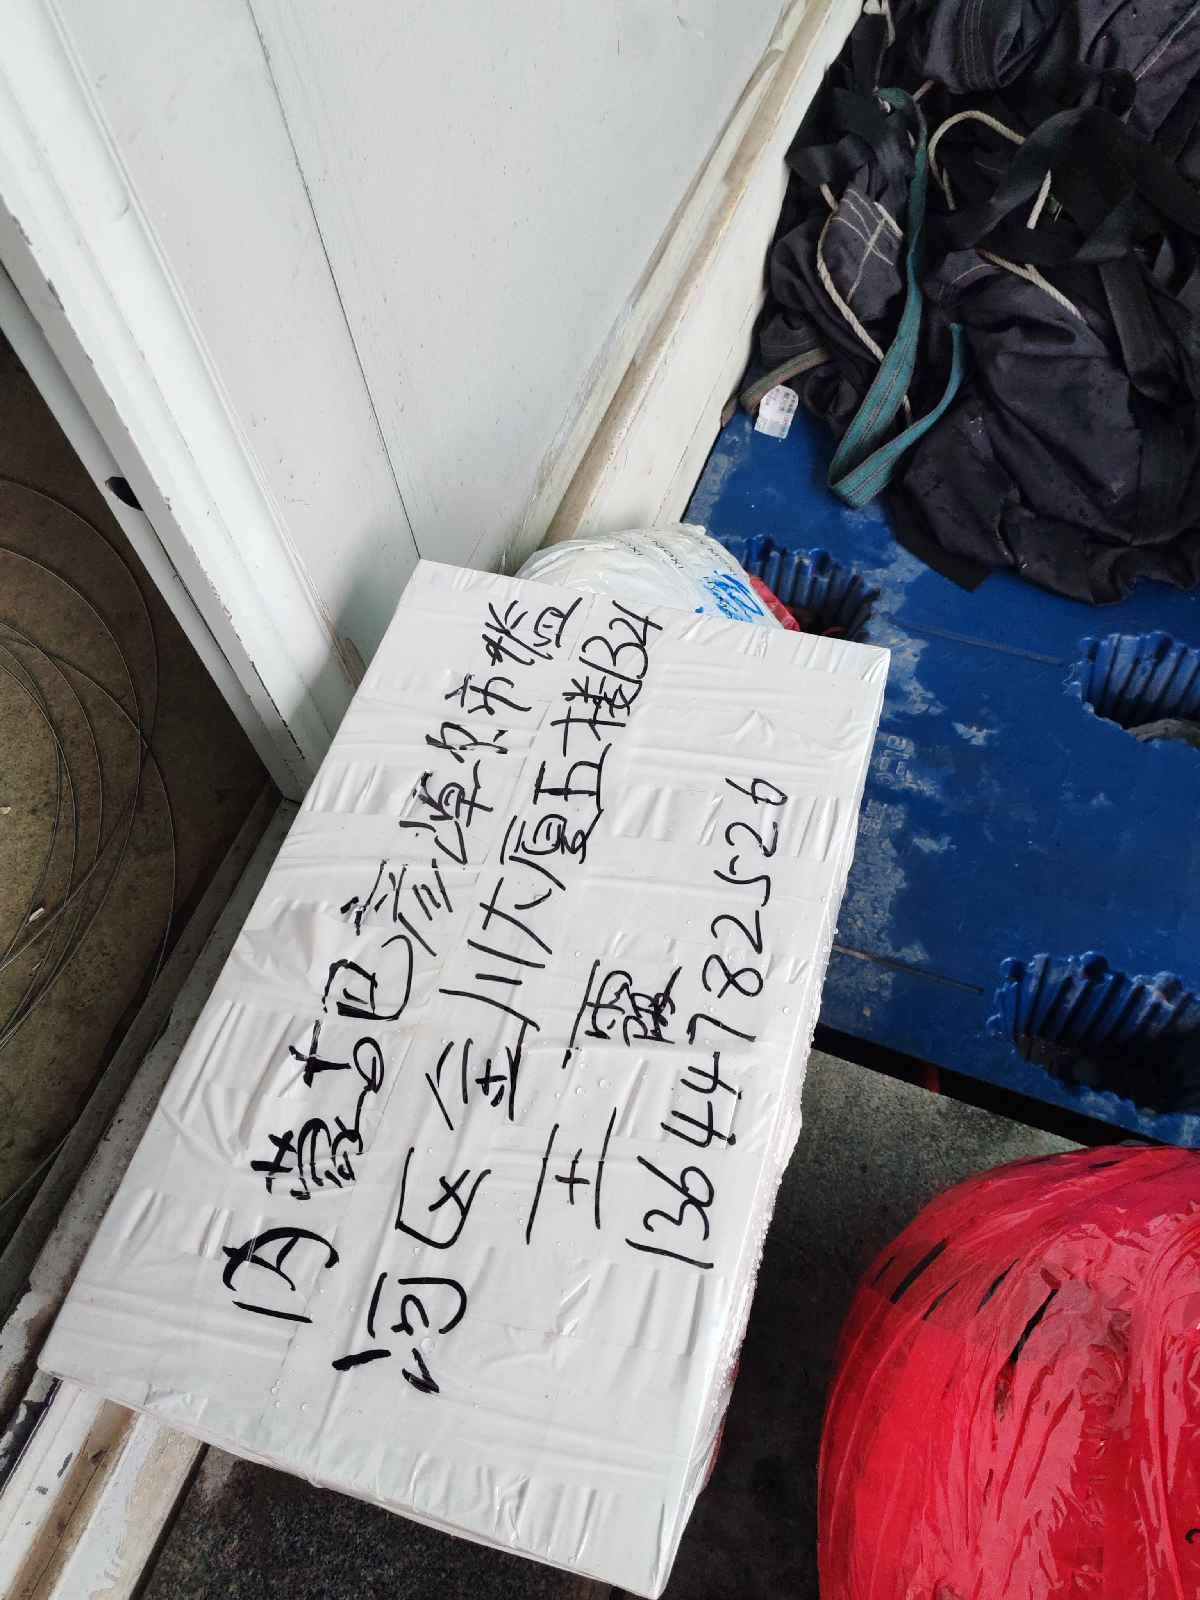 内蒙古巴彦淖尔市临
河区金川大厦五楼B24
王霞
13644782526